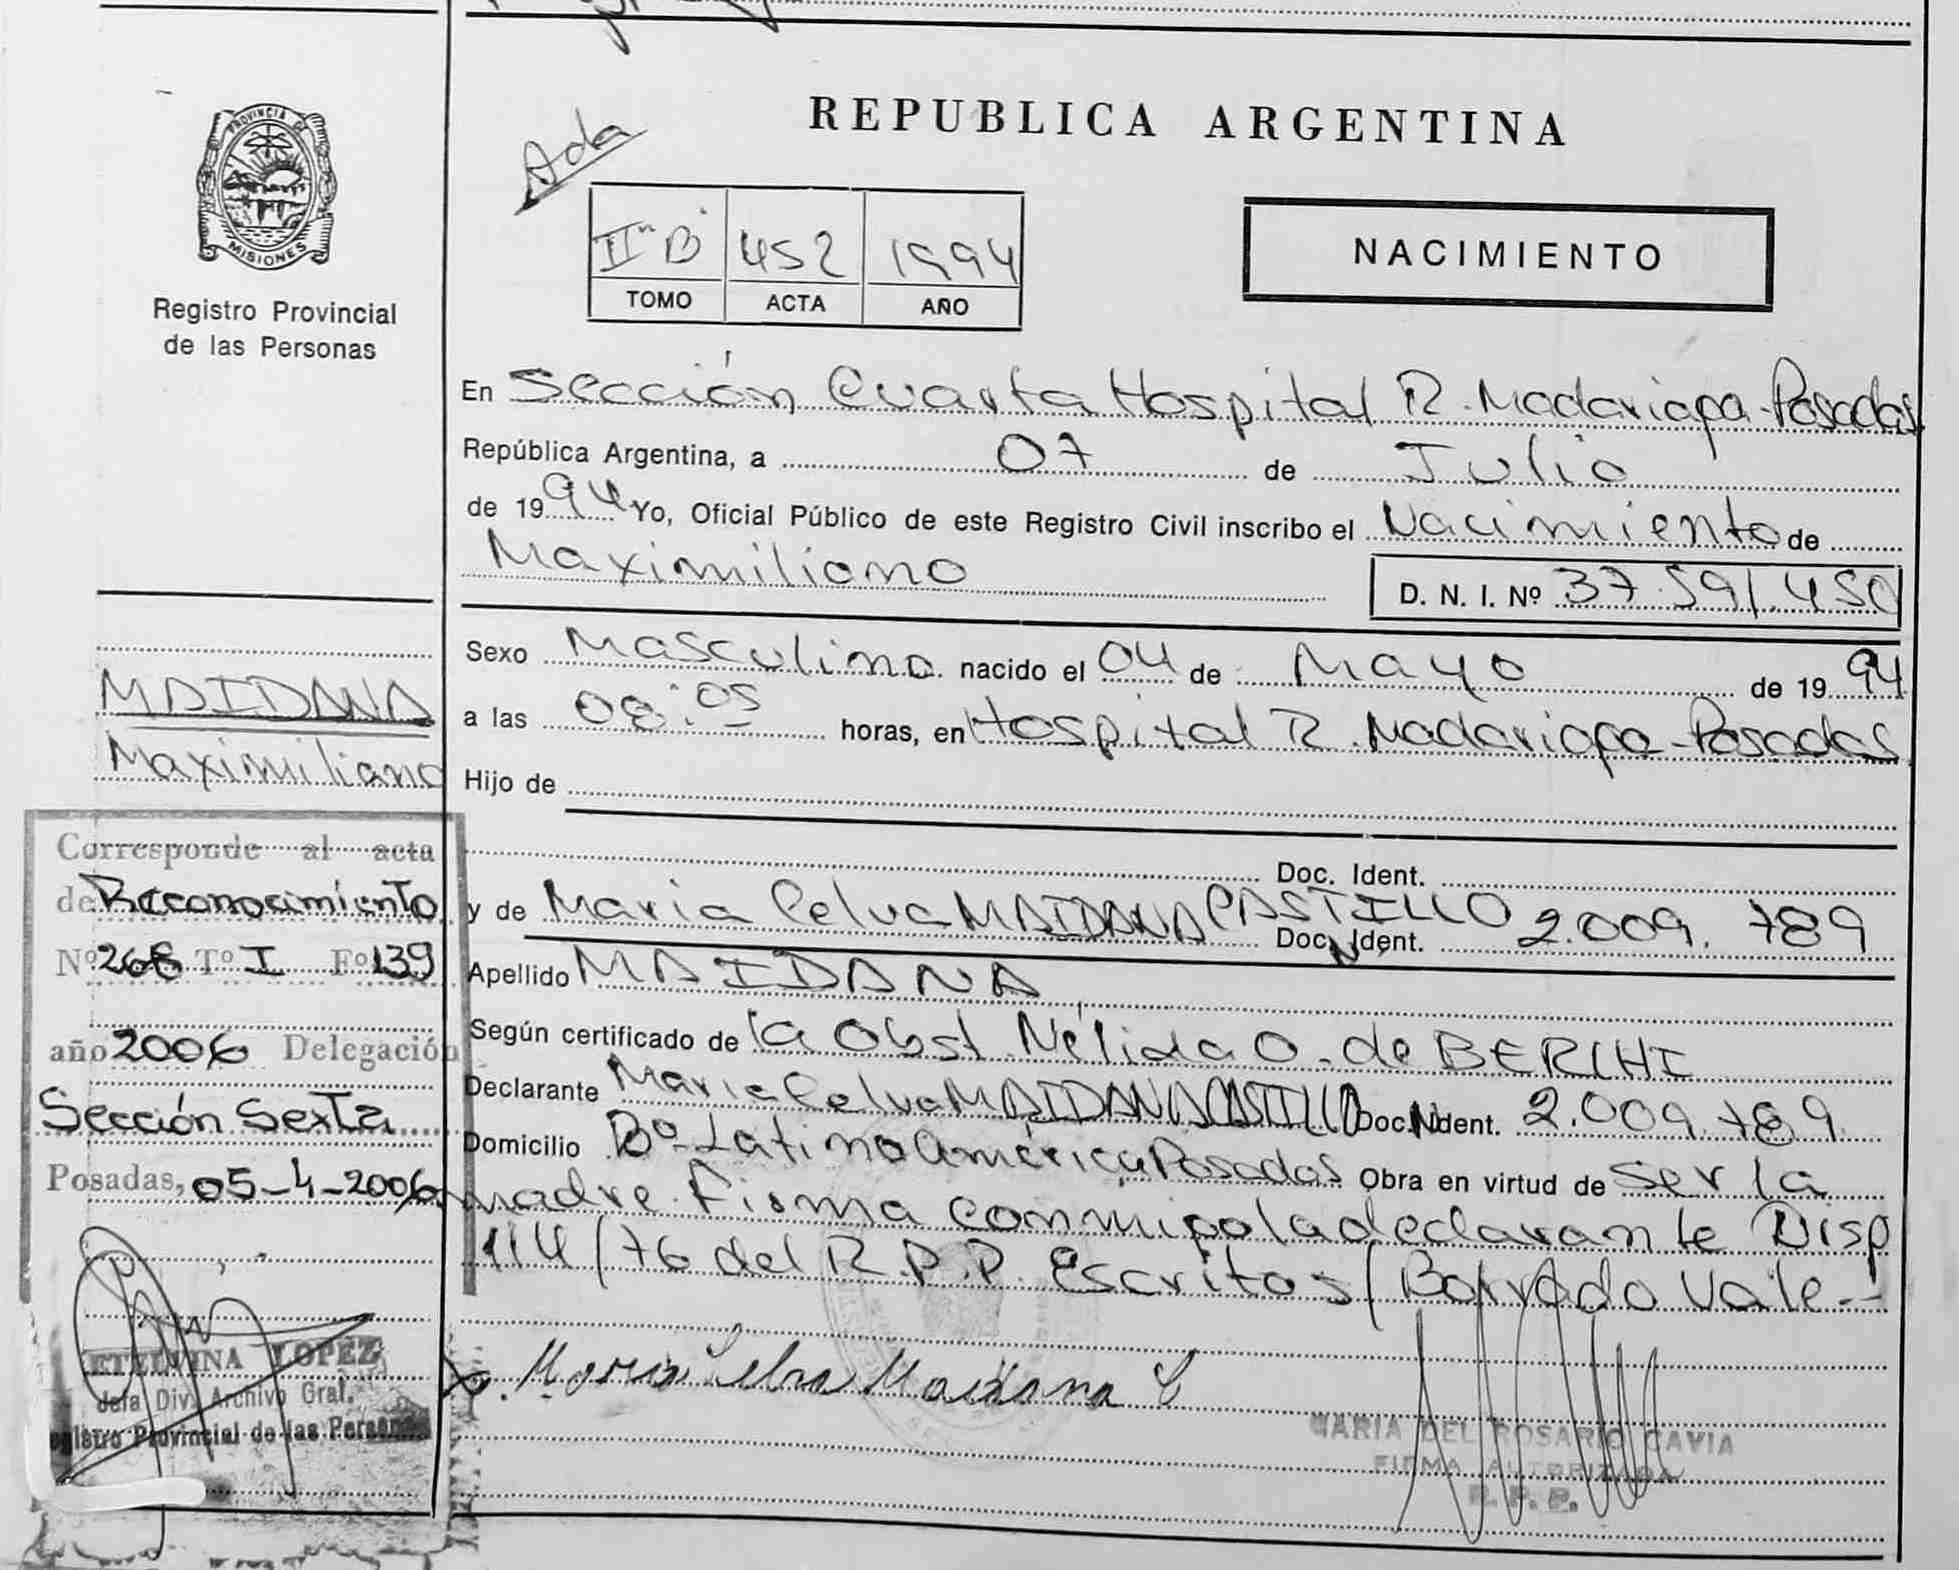 REPUBLICA ARGENTINA
Ada
PROVINCIA DE
MISIONES
Registro Provincial
de las Personas
IIº B 452 1994
TOMO ACTA AÑO
NACIMIENTO
En Sección Cuarta Hospital R. Madariaga-Posadas
República Argentina, a 07 de Julio
de 1994 Yo, Oficial Público de este Registro Civil inscribo el Nacimiento de
Maximiliano
D. N. I. Nº 37.591.450
Sexo Masculino nacido el 04 de Mayo de 1994
a las 08:05 horas, en Hospital R. Madariaga-Posadas
Hijo de
Doc. Ident.
y de Maria Celva MAIDANA CASTILLO Doc. N Ident. 2.009.789
Apellido MAIDANA
Según certificado de la Obst. Nélida O. de BERCHI
Declarante Maria Celva MAIDANA CASTILLO Doc. N Ident. 2.009.789
Domicilio Bº Latinoamérica Posadas Obra en virtud de ser la
madre. Firma conmigo la declarante Disp
114/76 del R.P.P. Escritos/Borrado Vale--
Maria Selva Maidana C
MARIA DEL ROSARIO CAVIA
FIRMA AUTORIZADA
R. P. P.
MAIDANA
Maximiliano
Corresponde al acta
de Reconocimiento
Nº 268 Tº I Fº 139
año 2006 Delegación
Sección Sexta
Posadas, 05-4-2006
ETELVINA LOPEZ
Jefa Div. Archivo Gral.
Registro Provincial de las Personas